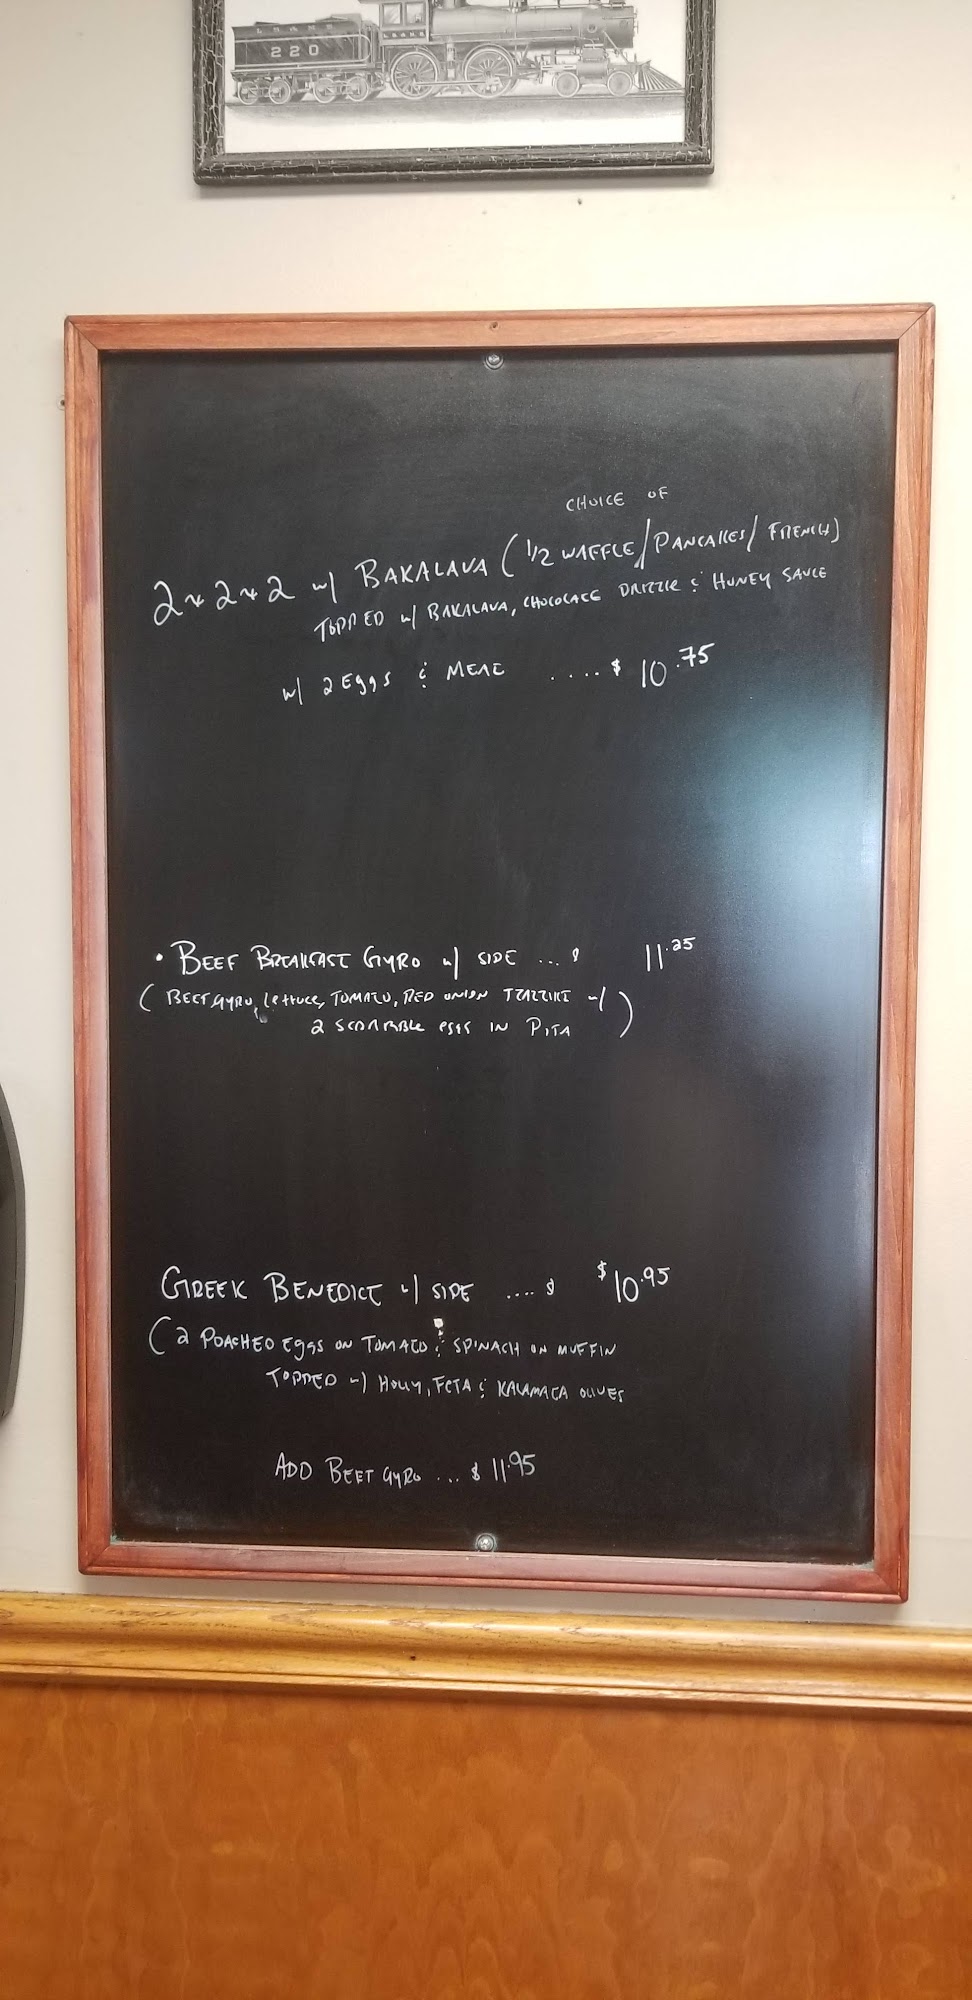 220
CHOICE OF
2x2x2 w/ BAKALAVA (1/2 WAFFLE/PANCAKES/FRENCH)
TOPPED w/ BAKALAVA, CHOCOLATE DRIZZLE & HONEY SAUCE
w/ 2 EggS & MEAT ....$ 10.75
• BEEF BREAKFAST GYRO w/ SIDE ...$ 11.25
(BEEF GYRO, LETTUCE, TOMATO, RED ONION TZATZIKI w/
2 SCRAMBLE EGGS IN PITA)
GREEK BENEDICT w/ SIDE ....$ $10.95
(2 POACHED EggS ON TOMATO & SPINACH ON MUFFIN
TOPPED w/ HOLLY, FETA & KALAMATA OLIVES
ADD BEEF GYRO ...$ 11.95